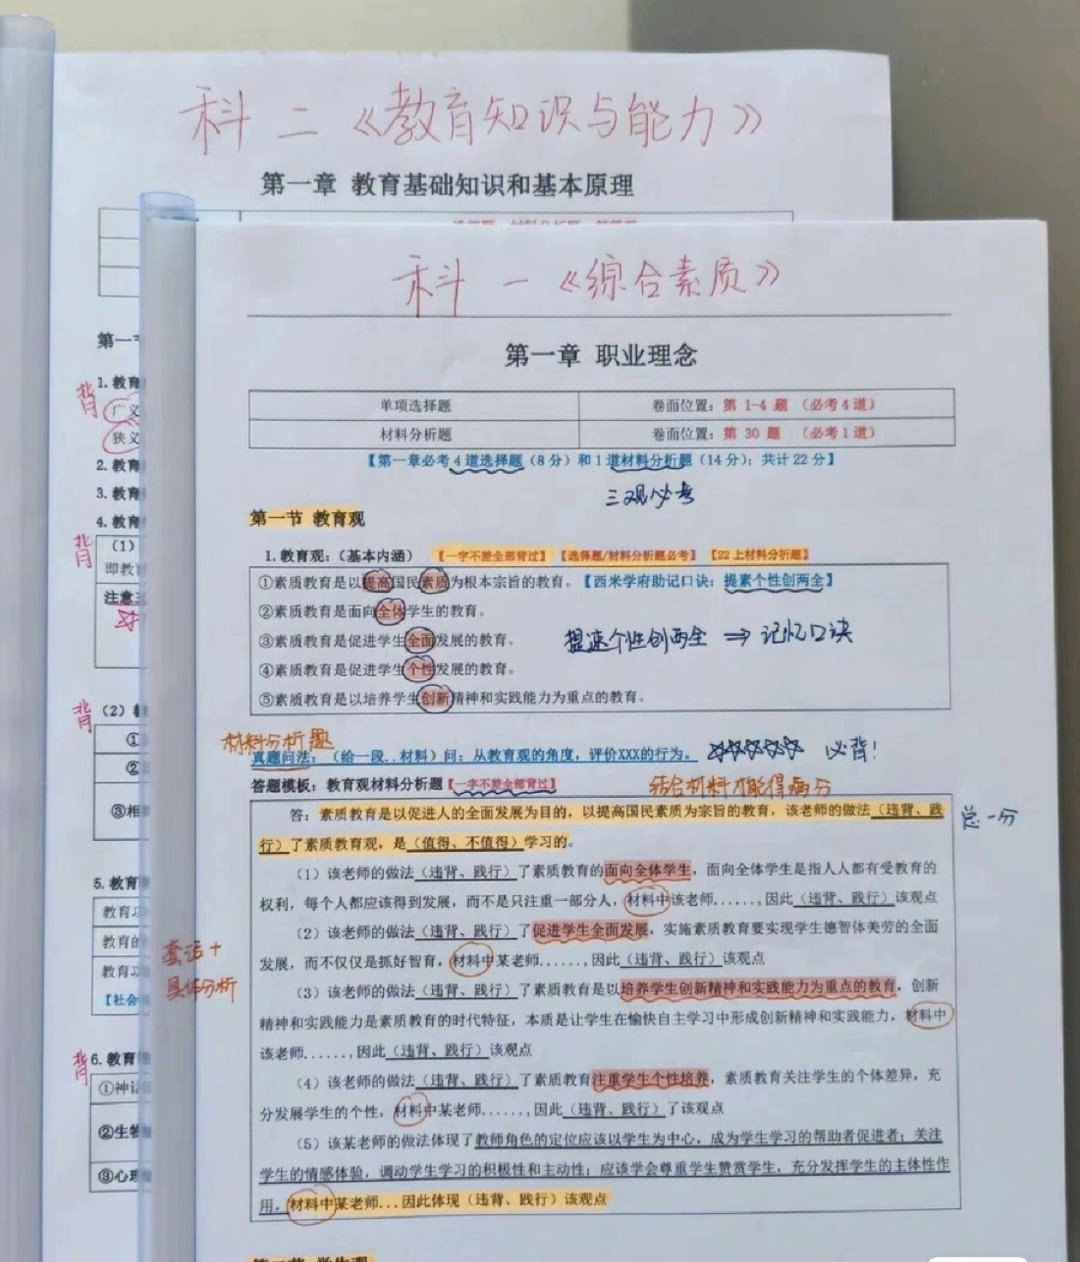 科二《教育知识与能力》
第一章 教育基础知识和基本原理
第一
1. 教育
背
广义
狭义
2. 教育
3. 教育
4. 教育
背
（1）
即教育
注意
背
（2）
①
②
③相
5. 教育
教育
教育的
教育
【社会
背
6. 教育
①神话
②生物
③心理
科一《综合素质》
第一章 职业理念
单项选择题 卷面位置：第 1-4 题 （必考 4 道）
材料分析题 卷面位置：第 30 题 （必考 1 道）
【第一章必考 4 道选择题（8 分）和 1 道材料分析题（14 分）；共计 22 分】
三观必考
第一节 教育观
1. 教育观：（基本内涵） 【一字不差全部背过】【选择题/材料分析题必考】【22 上材料分析题】
①素质教育是以提高国民素质为根本宗旨的教育。【西米学府助记口诀：提素个性创两全】
②素质教育是面向全体学生的教育。
③素质教育是促进学生全面发展的教育。
提速个性创两全 ⇒ 记忆口诀
④素质教育是促进学生个性发展的教育。
⑤素质教育是以培养学生创新精神和实践能力为重点的教育。
材料分析题
真题问法：（给一段..材料）问：从教育观的角度，评价XXX的行为。 ☆☆☆☆☆ 必背！
答题模板：教育观材料分析题【一字不差全部背过】 结合材料才能得满分
答：素质教育是以促进人的全面发展为目的，以提高国民素质为宗旨的教育，该老师的做法（违背、践
总一分
行）了素质教育观，是（值得、不值得）学习的。
（1）该老师的做法（违背、践行）了素质教育的面向全体学生，面向全体学生是指人人都有受教育的
权利，每个人都应该得到发展，而不是只注重一部分人，材料中该老师......，因此（违背、践行）该观点
（2）该老师的做法（违背、践行）了促进学生全面发展，实施素质教育要实现学生德智体美劳的全面
发展，而不仅仅是抓好智育，材料中某老师......，因此（违背、践行）该观点
套话+
具体分析
（3）该老师的做法（违背、践行）了素质教育是以培养学生创新精神和实践能力为重点的教育，创新
精神和实践能力是素质教育的时代特征，本质是让学生在愉快自主学习中形成创新精神和实践能力，材料中
该老师......，因此（违背、践行）该观点
（4）该老师的做法（违背、践行）了素质教育注重学生个性培养，素质教育关注学生的个体差异，充
分发展学生的个性，材料中某老师......，因此（违背、践行）了该观点
（5）该某老师的做法体现了教师角色的定位应该以学生为中心，成为学生学习的帮助者促进者；关注
学生的情感体验，调动学生学习的积极性和主动性；应该学会尊重学生赞赏学生，充分发挥学生的主体性作
用，材料中某老师...因此体现（违背、践行）该观点